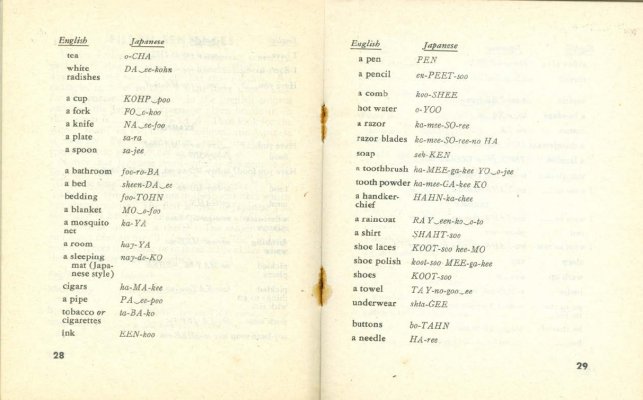 English Japanese
tea o-CHA
white DA‿ee-kohn
radishes
a cup KOHP‿poo
a fork FO‿o-koo
a knife NA‿ee-foo
a plate sa-ra
a spoon sa-jee
a bathroom foo-ro-BA
a bed sheen-DA‿ee
bedding foo-TOHN
a blanket MO‿o-foo
a mosquito ka-YA
net
a room hay-YA
a sleeping nay-do-KO
mat (Japa-
nese style)
cigars ha-MA-kee
a pipe PA‿ee-poo
tobacco or ta-BA-ko
cigarettes
ink EEN-koo
28
English Japanese
a pen PEN
a pencil en-PEET-soo
a comb koo-SHEE
hot water o-YOO
a razor ka-mee-SO-ree
razor blades ka-mee-SO-ree-no HA
soap sek-KEN
a toothbrush ha-MEE-ga-kee YO‿o-jee
tooth powder ha-mee-GA-kee KO
a handker- HAHN-ka-chee
chief
a raincoat RAY‿een-ko‿o-to
a shirt SHAHT-soo
shoe laces KOOT-soo kee-MO
shoe polish koot-soo MEE-ga-kee
shoes KOOT-soo
a towel TAY-no-goo‿ee
underwear shta-GEE
buttons bo-TAHN
a needle HA-ree
29